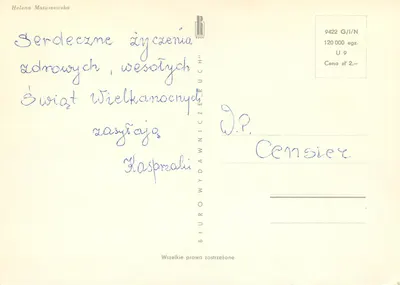 Helena Matuszewska
Serdeczne życzenia
zdrowych, wesołych
Świąt Wielkanocnych
zasyłają
Kasprzaki
BIURO WYDAWNICZE „RUCH”
9422 G/I/N
120 000 egz.
U 9
Cena zł 2,—
W.P.
Censier
Wszelkie prawa zastrzeżone